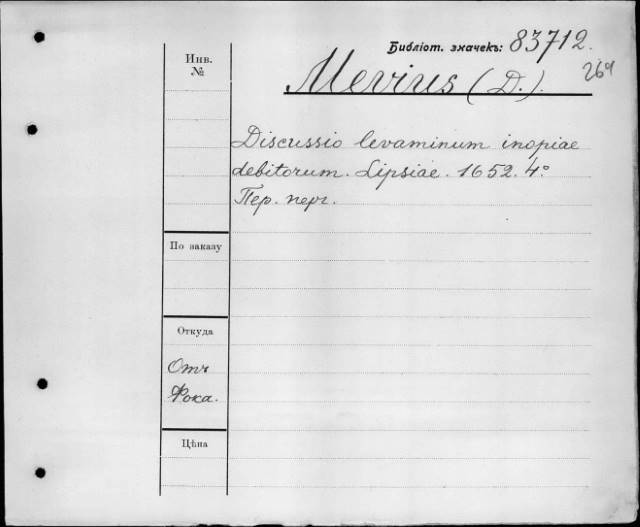 Библіот. значекъ: 83712.
264
Инв.
№
Mevius (D.).
Discussio levaminum inopiae
debitorum. Lipsiae. 1652. 4°
Пер. перг.
По заказу
Откуда
Отъ
Фока.
Цѣна